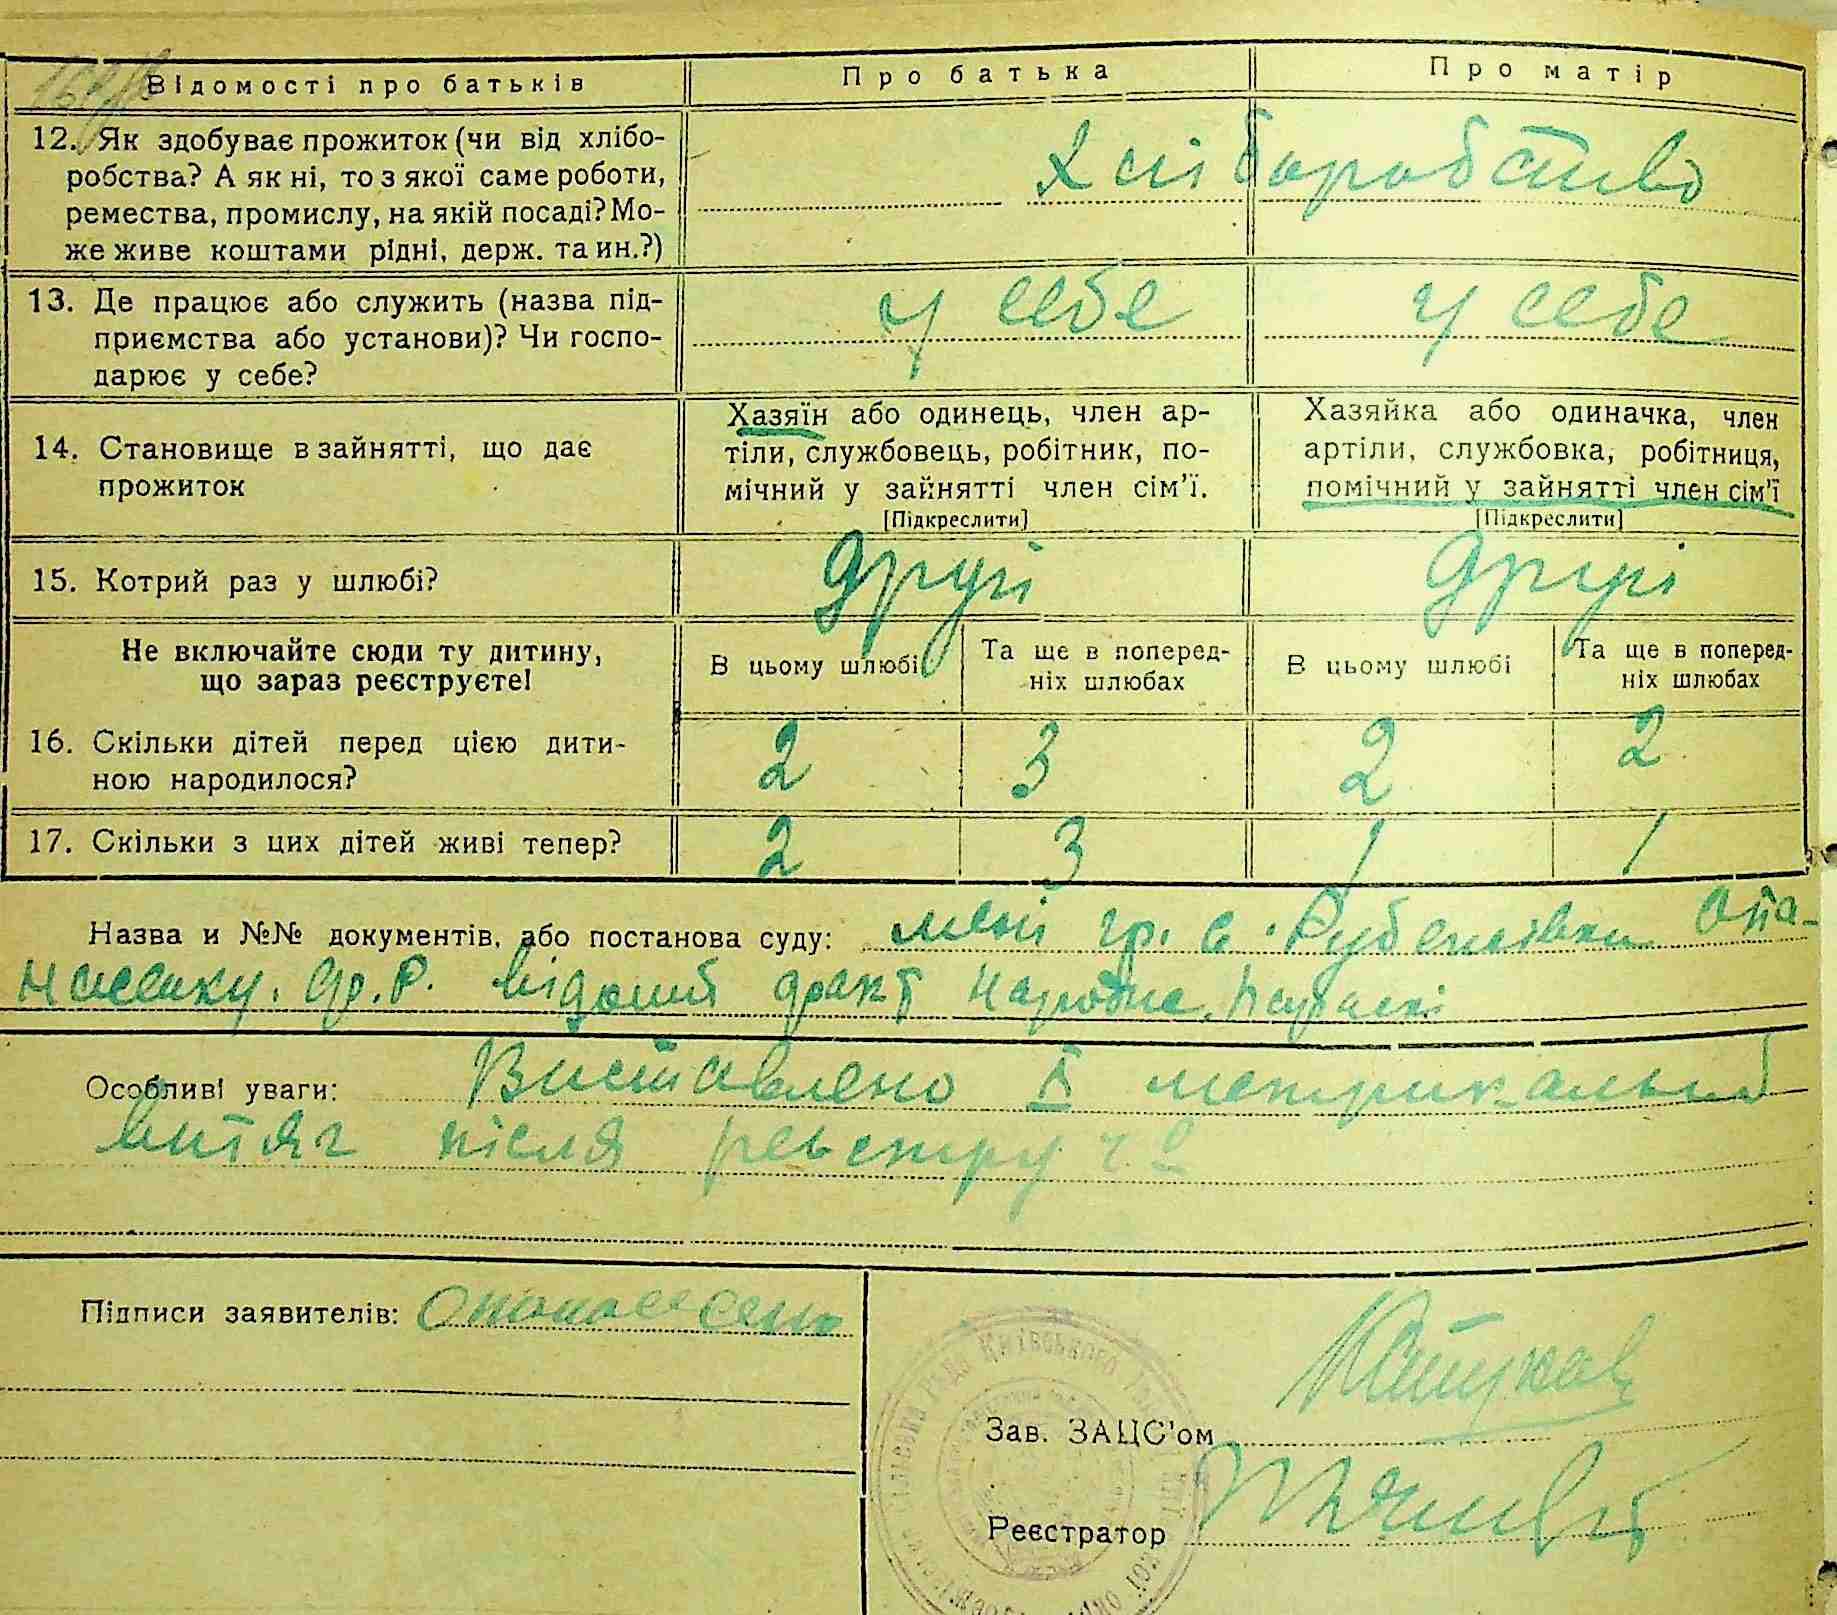 Відомості про батьків
Про батька
Про матір
12. Як здобуває прожиток (чи від хлібо-
робства? А як ні, то з якої саме роботи,
ремества, промислу, на якій посаді? Мо-
же живе коштами рідні, держ. та ин.?)
Хліборобство
13. Де працює або служить (назва під-
приємства або установи)? Чи госпо-
дарює у себе?
у себе
у себе
14. Становище в зайнятті, що дає
прожиток
Хазяїн або одинець, член ар-
тіли, службовець, робітник, по-
мічний у зайнятті член сім'ї.
[Підкреслити]
Хазяйка або одиначка, член
артіли, службовка, робітниця,
помічний у зайнятті член сім'ї
[Підкреслити]
15. Котрий раз у шлюбі?
другі
другі
Не включайте сюди ту дитину,
що зараз реєструєте!
В цьому шлюбі
Та ще в поперед-
ніх шлюбах
В цьому шлюбі
Та ще в поперед-
ніх шлюбах
16. Скільки дітей перед цією дити-
ною народилося?
2 3 2 2
17. Скільки з цих дітей живі тепер?
2 3 1 1
Назва и №№ документів, або постанова суду: мені гр. с. Опа-
відомий факт
Особливі уваги: Виставлено метрикальний
витяг після реєстру
Підписи заявителів:
Зав. ЗАЦС'ом
Реєстратор